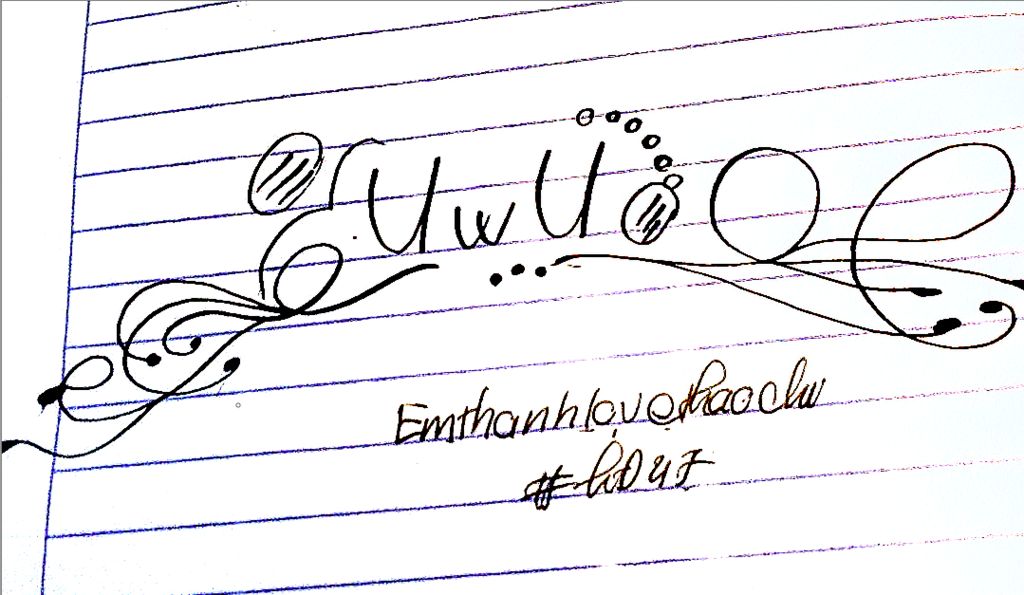 UwU
Emthanhlovethaochu